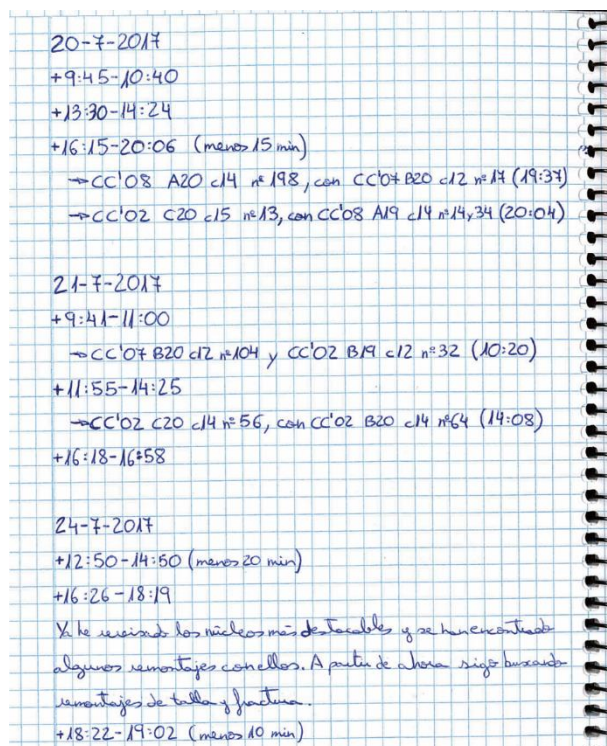 20-7-2017
+9:45-10:40
+13:30-14:24
+16:15-20:06 (menos 15 min)
→CC'08 A20 c14 nº198, con CC'07 B20 c12 nº17 (19:37)
→CC'02 C20 c15 nº13, con CC'08 A19 c14 nº14y34 (20:04)
21-7-2017
+9:41-11:00
→CC'07 B20 c12 nº104 y CC'02 B19 c12 nº32 (10:20)
+11:55-14:25
→CC'02 C20 c14 nº56, con CC'02 B20 c14 nº64 (14:08)
+16:18-16:58
24-7-2017
+12:50-14:50 (menos 20 min)
+16:26-18:19
Ya he revisado los núcleos más destacables y se han encontrado
algunos remontajes con ellos. A partir de ahora sigo buscando
remontajes de talla y fractura.
+18:22-19:02 (menos 10 min)